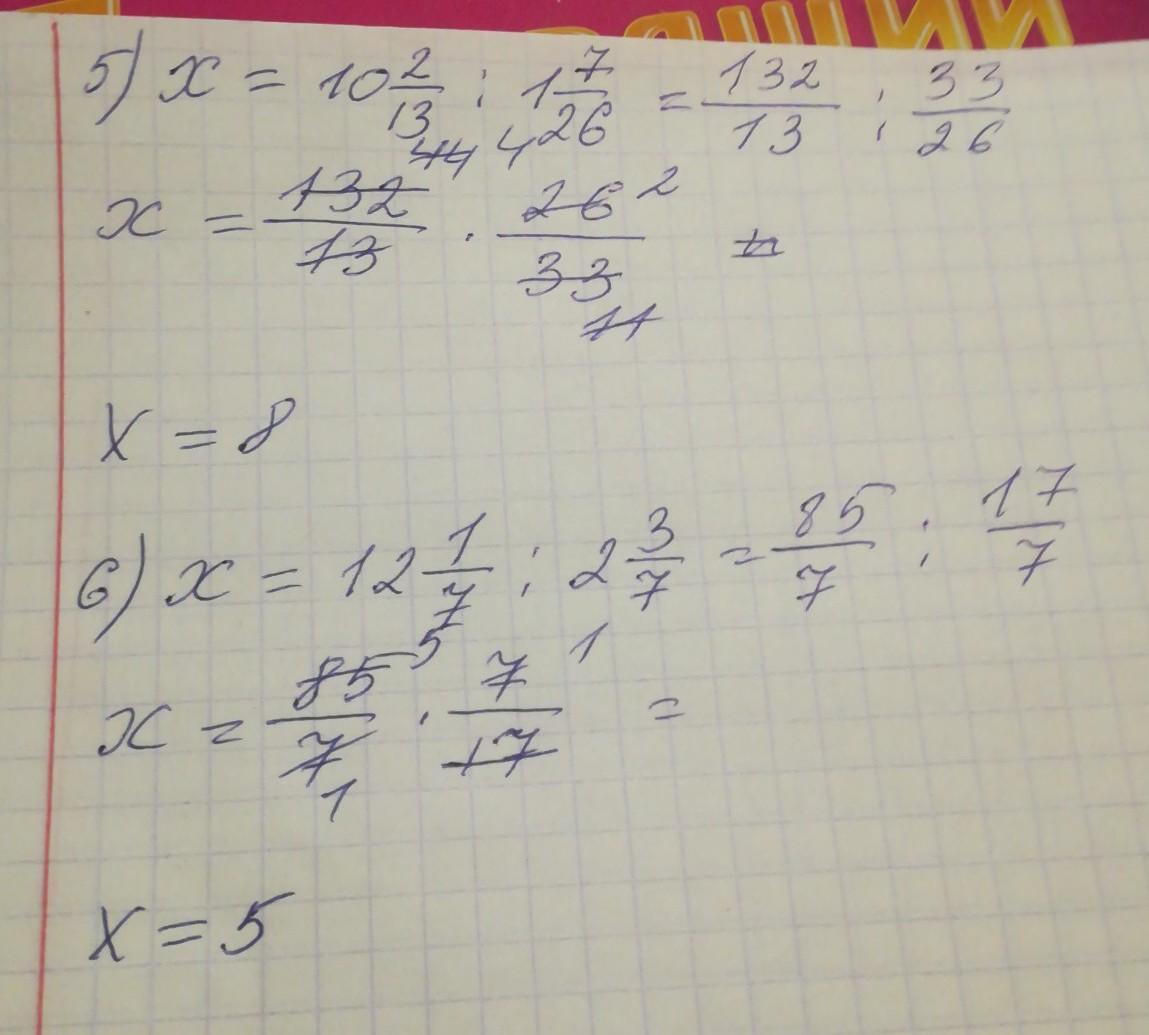 ращий
5) x = 10 2/13 : 1 7/26 = 132/13 : 33/26
44 4
x = 132/13 · 26/33 2
11
x = 8
6) x = 12 1/7 : 2 3/7 = 85/7 : 17/7
5 1
x = 85/7 · 7/17 =
1
x = 5